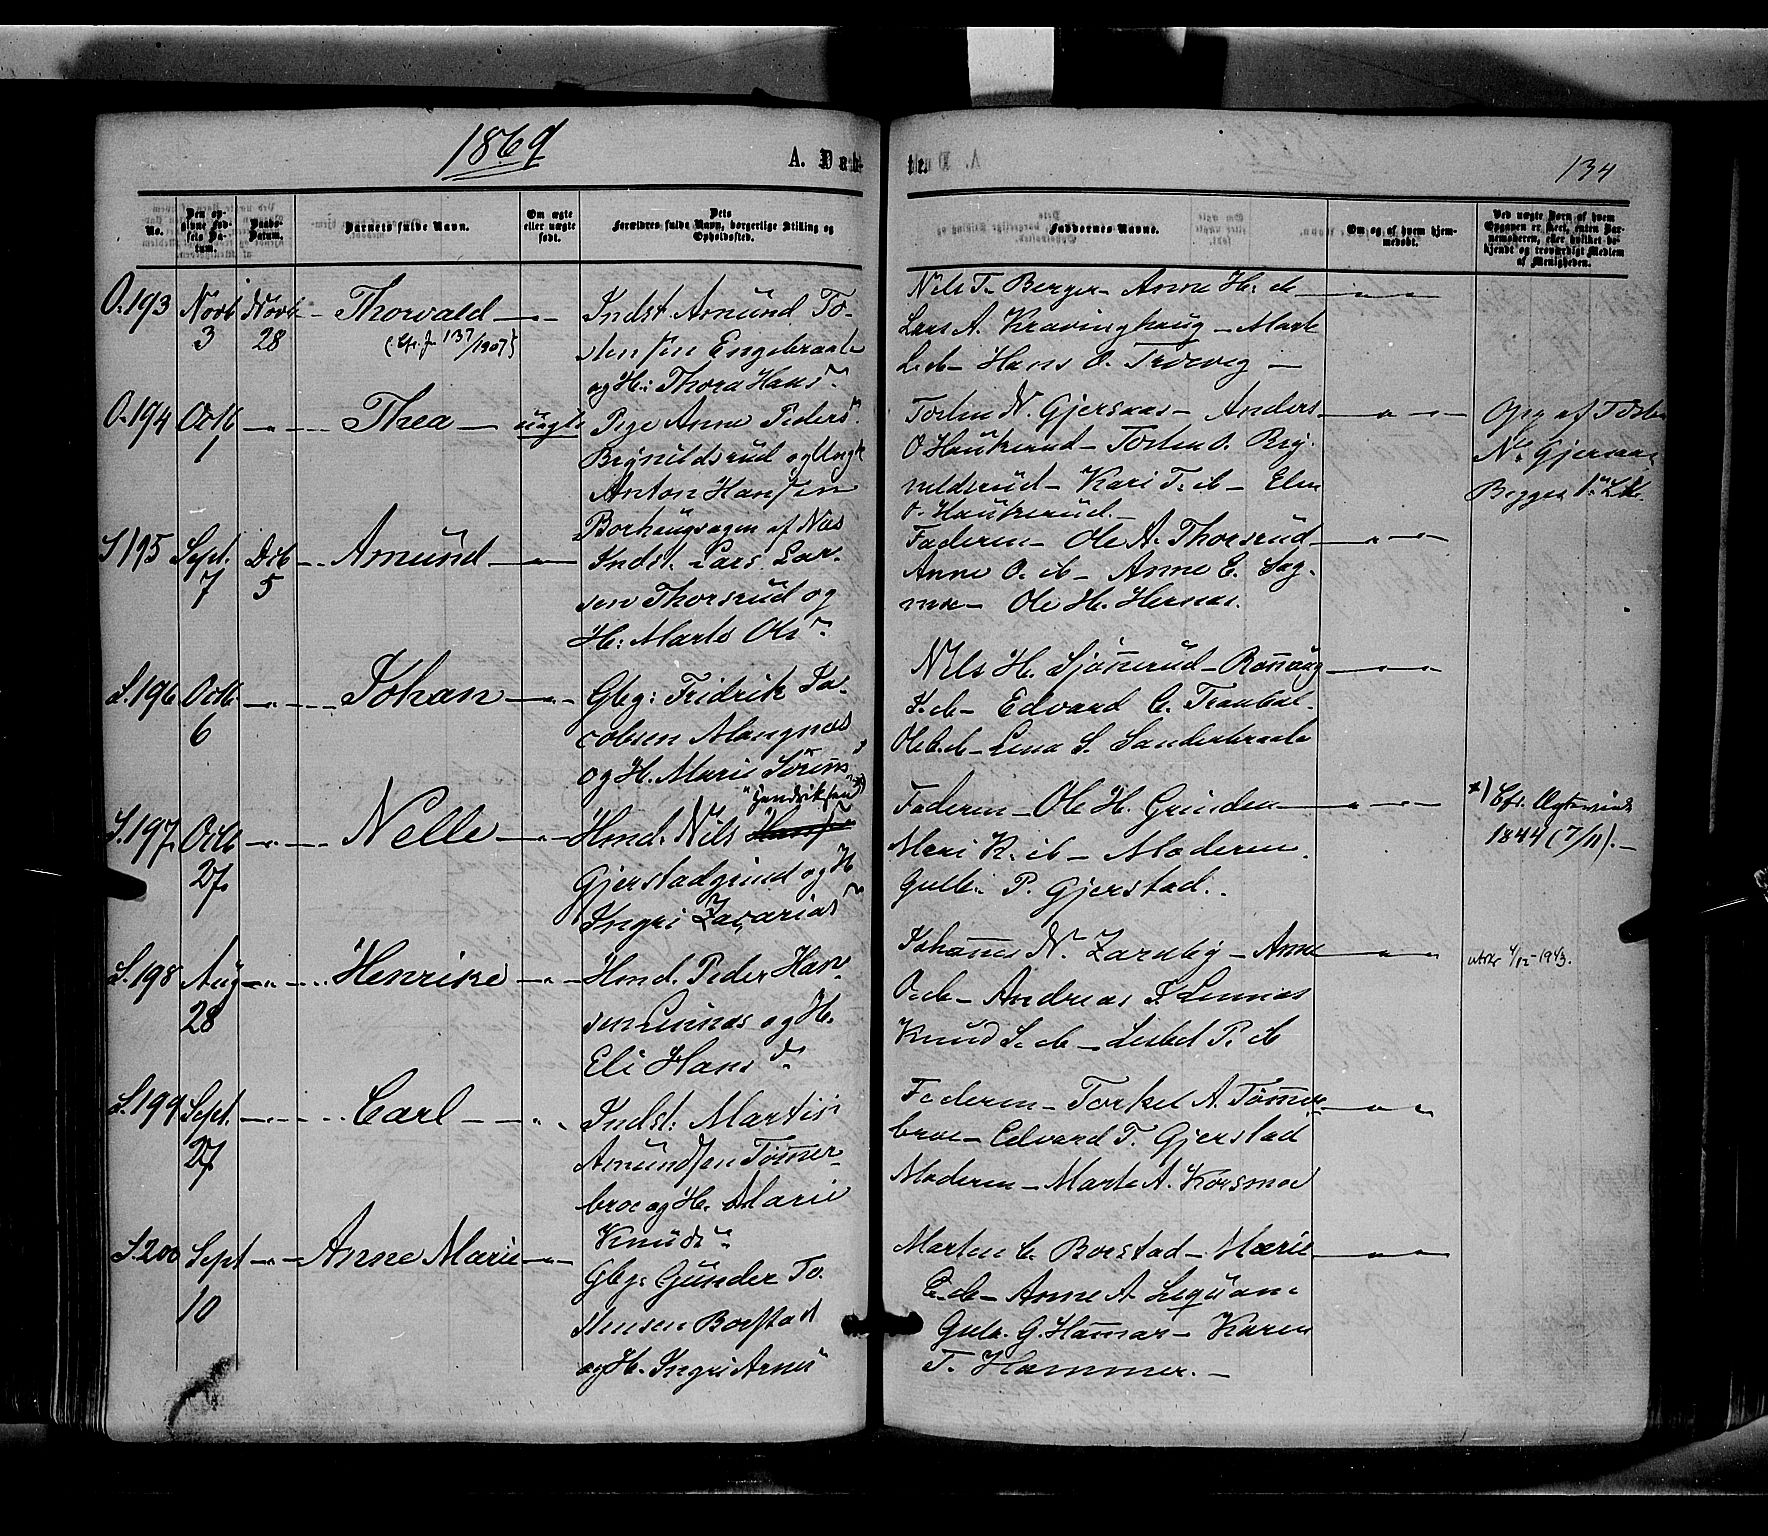 1869
A. Dab-
te.
134
No.
Den op-
givne Fød-
sels Da-
tum.
Daabs-
Datum.
Barnets fulde Navn.
Om ægte
eller uægte
født.
Dets
Forældres fulde Navn, borgerlige Stilling og
Opholdssted.
Faddernes Navne.
Om og af hvem hjem-
medøbt.
Ved uægte Børn af hvem
Opgaven er skeet, enten Bar-
nemoderen, eller hvilket be-
kjendt og troværdigt Medlem
af Menigheden.
O.193 Novb 3 Novb 28 Thorvald
137/1907
Indst. Amund To-
stensen Engebraate
og H: Thora Hansdr
Nils T. Berger - Anne H. ib
Lars A. Kravinghaug - Marte
L. ib - Hans O. Trosvig -
O.194 Octb 1 Thea uægte
Pige Anne Pedersdr
Brynildsrud og Ungk
Anton Hansen
Borhaugsagen af Næs
Torsten N. Gjersaas - Anders
O Haukerud - Torsten O. Bry-
nildsrud - Kari T. ib - Elen
O. Haukerud. -
Opg af Torsten
N. Gjersaas
Begges 1ste L.M.
S.195 Sept. 7 Dcb 5 Amund
Indst. Lars Lar-
sen Thorsrud og
H: Marte Olsdr
Faderen - Ole A. Thorsrud
Anne O. ib - Anne E. Sag-
moe - Ole H. Hernæs.
S.196 Octb 6 Johan
Gbg: Fridrik Ja-
cobsen Mangnæs
og H. Marie Sørensdr
Nils H. Sjønnerud - Rønnaug
J. ib - Edvard C. Traubøl -
Ole C. ib - Lena S. Sanderbraate
S.197. Octb 27. Nelle
"Hendriksen" *)
Hmd. Nils
Gjerstadgrind og H
Ingri Zacariasdr
Faderen - Ole H. Grinden
Mari K. ib - Moderen.
Gulb. P. Gjerstad.
*) Cfr. Ægtevied
1844 (7/11). -
S.198 Aug 28 Henrike
Hmd. Peder Han-
sen Linnæs og H.
Eli Hansdr.
Johannes N. Zarnby - Anne
O. ib - Andreas S Linnæs
Knud S. ib - Lisbet P. ib
attst 4/12-1943.
S.199 Sept. 27 Carl
Indst: Martin
Amundsen Tømmer-
broe og H. Marie
Knudsdr
Faderen - Torkel A. Tømmer-
broe - Edvard T. Gjerstad
Moderen - Marte A. Korsmoe
S.200 Sept 10 Anne Marie
Gbg: Gunder To-
stensen Borstad
og H. Ingri Arnesdr
Marten C. Borstad - Marie
C. ib - Anne A.
Gulb. G. Hammer - Karen
T. Hammer. -